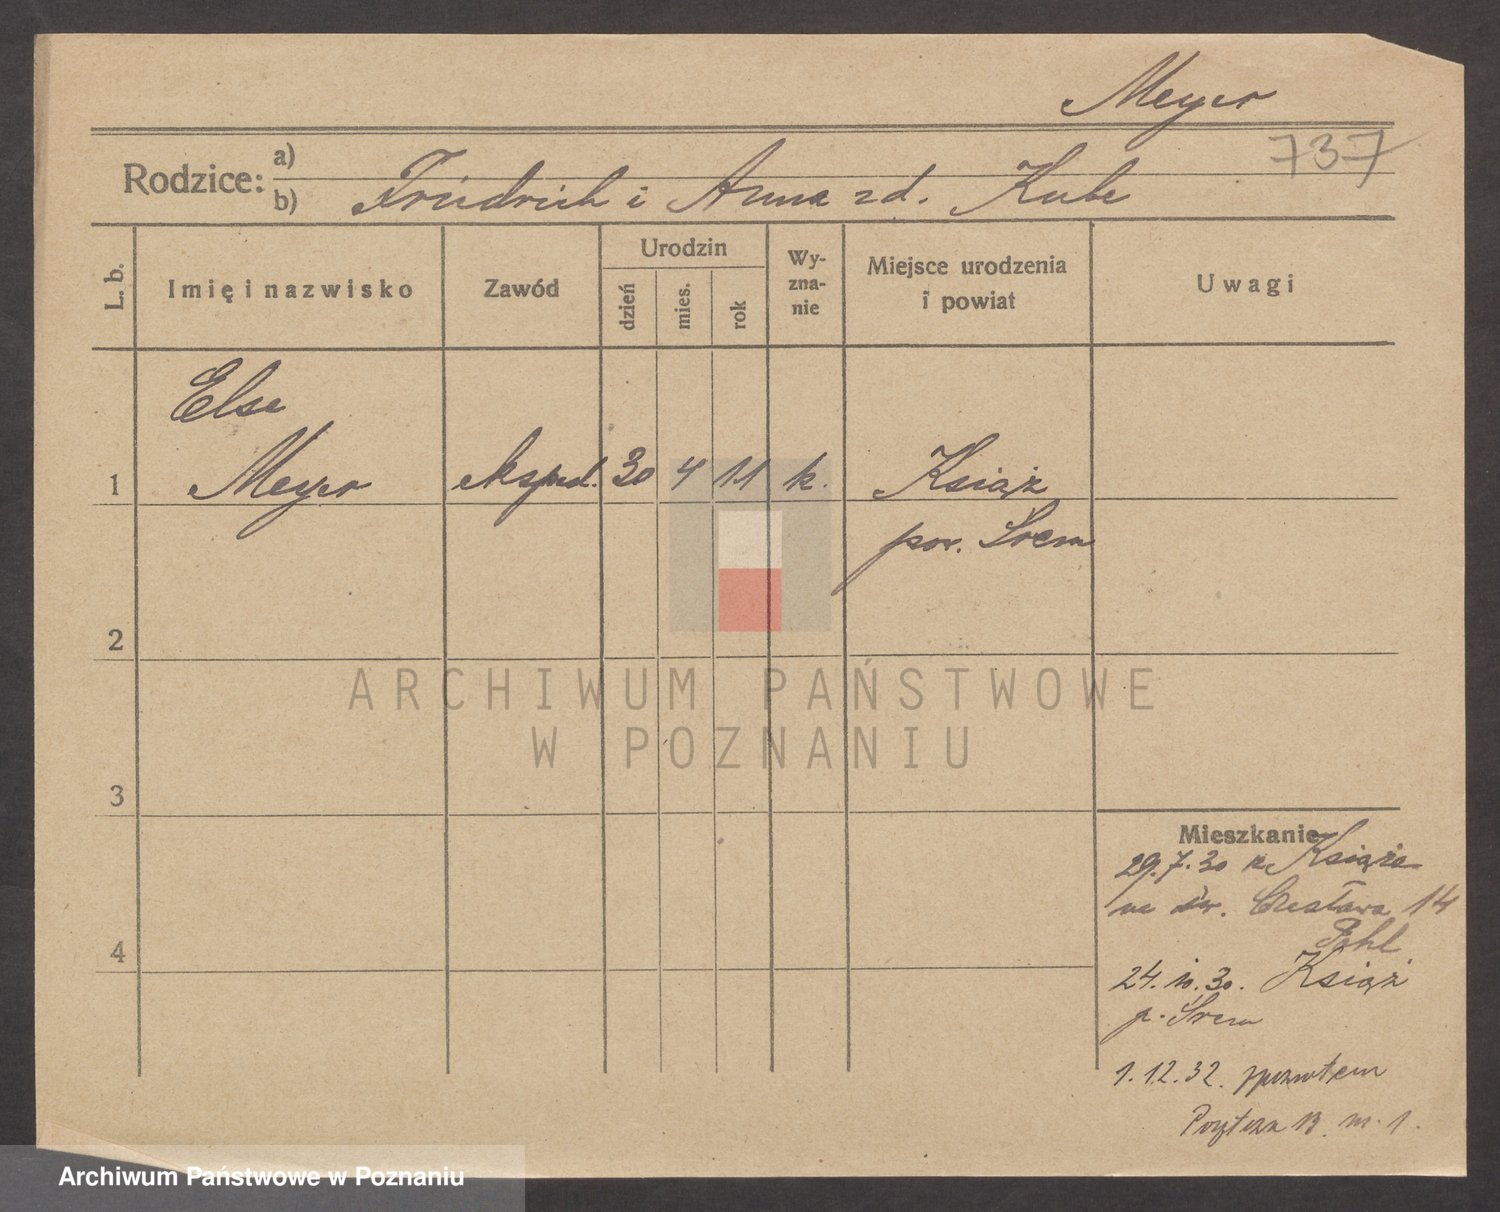 Meyer
737
Rodzice: a)
b) Friedrich i Anna zd. Kube
L. b.
Imię i nazwisko
Zawód
Urodzin
dzień
mies.
rok
Wy-
zna-
nie
Miejsce urodzenia
i powiat
Uwagi
Else
1 Meyer eksped. 30 4 11 k. Książ
pow. Śrem
2
3
4
ARCHIWUM PAŃSTWOWE
W POZNANIU
Mieszkanie
29.7.30 z Książa
na św. Czesława 14
Pohl
24.10.30. Książ
p. Śrem
1.12.32. zpowrotem
13 m. 1.
Archiwum Państwowe w Poznaniu